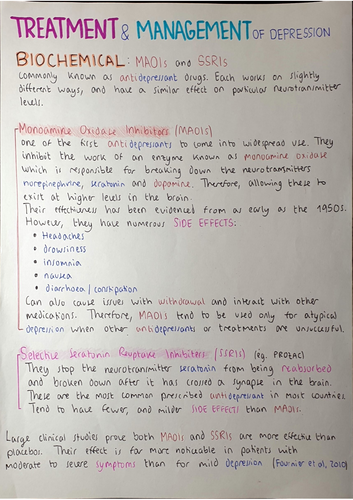 TREATMENT & MANAGEMENT OF DEPRESSION
BIOCHEMICAL: MAOIs and SSRIs
Commonly known as antidepressant drugs. Each works on slightly
different ways, and have a similar effect on particular neurotransmitter
levels.
Monoamine Oxidase Inhibitors (MAOIs)
one of the first antidepressants to come into widespread use. They
inhibit the work of an enzyme known as monoamine oxidase
which is responsible for breaking down the neurotransmitters
norepinephrine, seratonin and dopamine. Therefore, allowing these to
exist at higher levels in the brain.
Their effectiveness has been evidenced from as early as the 1950s.
However, they have numerous SIDE EFFECTS:
• Headaches
• drowsiness
• insomnia
• nausea
• diarrhoea / constipation
Can also cause issues with withdrawal and interact with other
medications. Therefore, MAOIs tend to be used only for atypical
depression when other antidepressants or treatments are unsuccessful.
Selective Seratonin Reuptake Inhibitors (SSRIs) (eg. PROZAC)
They stop the neurotransmitter seratonin from being reabsorbed
and broken down after it has crossed a synapse in the brain.
These are the most common prescribed antidepressant in most countries.
Tend to have fewer, and milder SIDE EFFECTS than MAOIs.
Large clinical studies prove both MAOIs and SSRIs are more effective than
placebos. Their effect is far more noticeable in patients with
moderate to severe symptoms than for mild depression (Fournier et al, 2010)